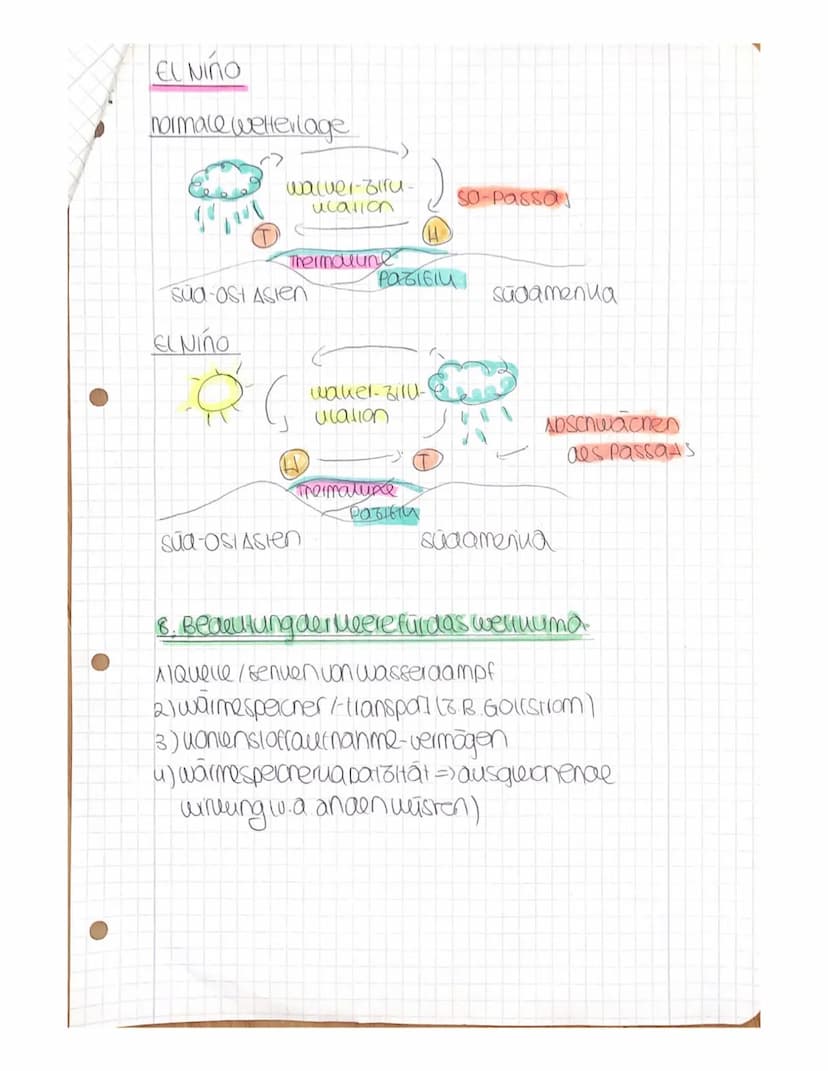 El Niño
normale Wetterlage
Walker-Zirku-
lation
SO-Passat
T
H
Thermokline
Pazifik
Süd-Ost Asien
Südamerika
El Niño
Walker-Zirku-
lation
Abschwächen
des Passats
H
T
Thermokline
Pazifik
Süd-Ost Asien
Südamerika
8. Bedeutung der Meere für das Weltklima
1) Quelle / Senken von Wasserdampf
2) Wärmespeicher /-transport (z.B. Golfstrom)
3) Kohlenstoffaufnahme-vermögen
4) Wärmespeicherkapazität => ausgleichende
Wirkung (v.a an den Küsten)